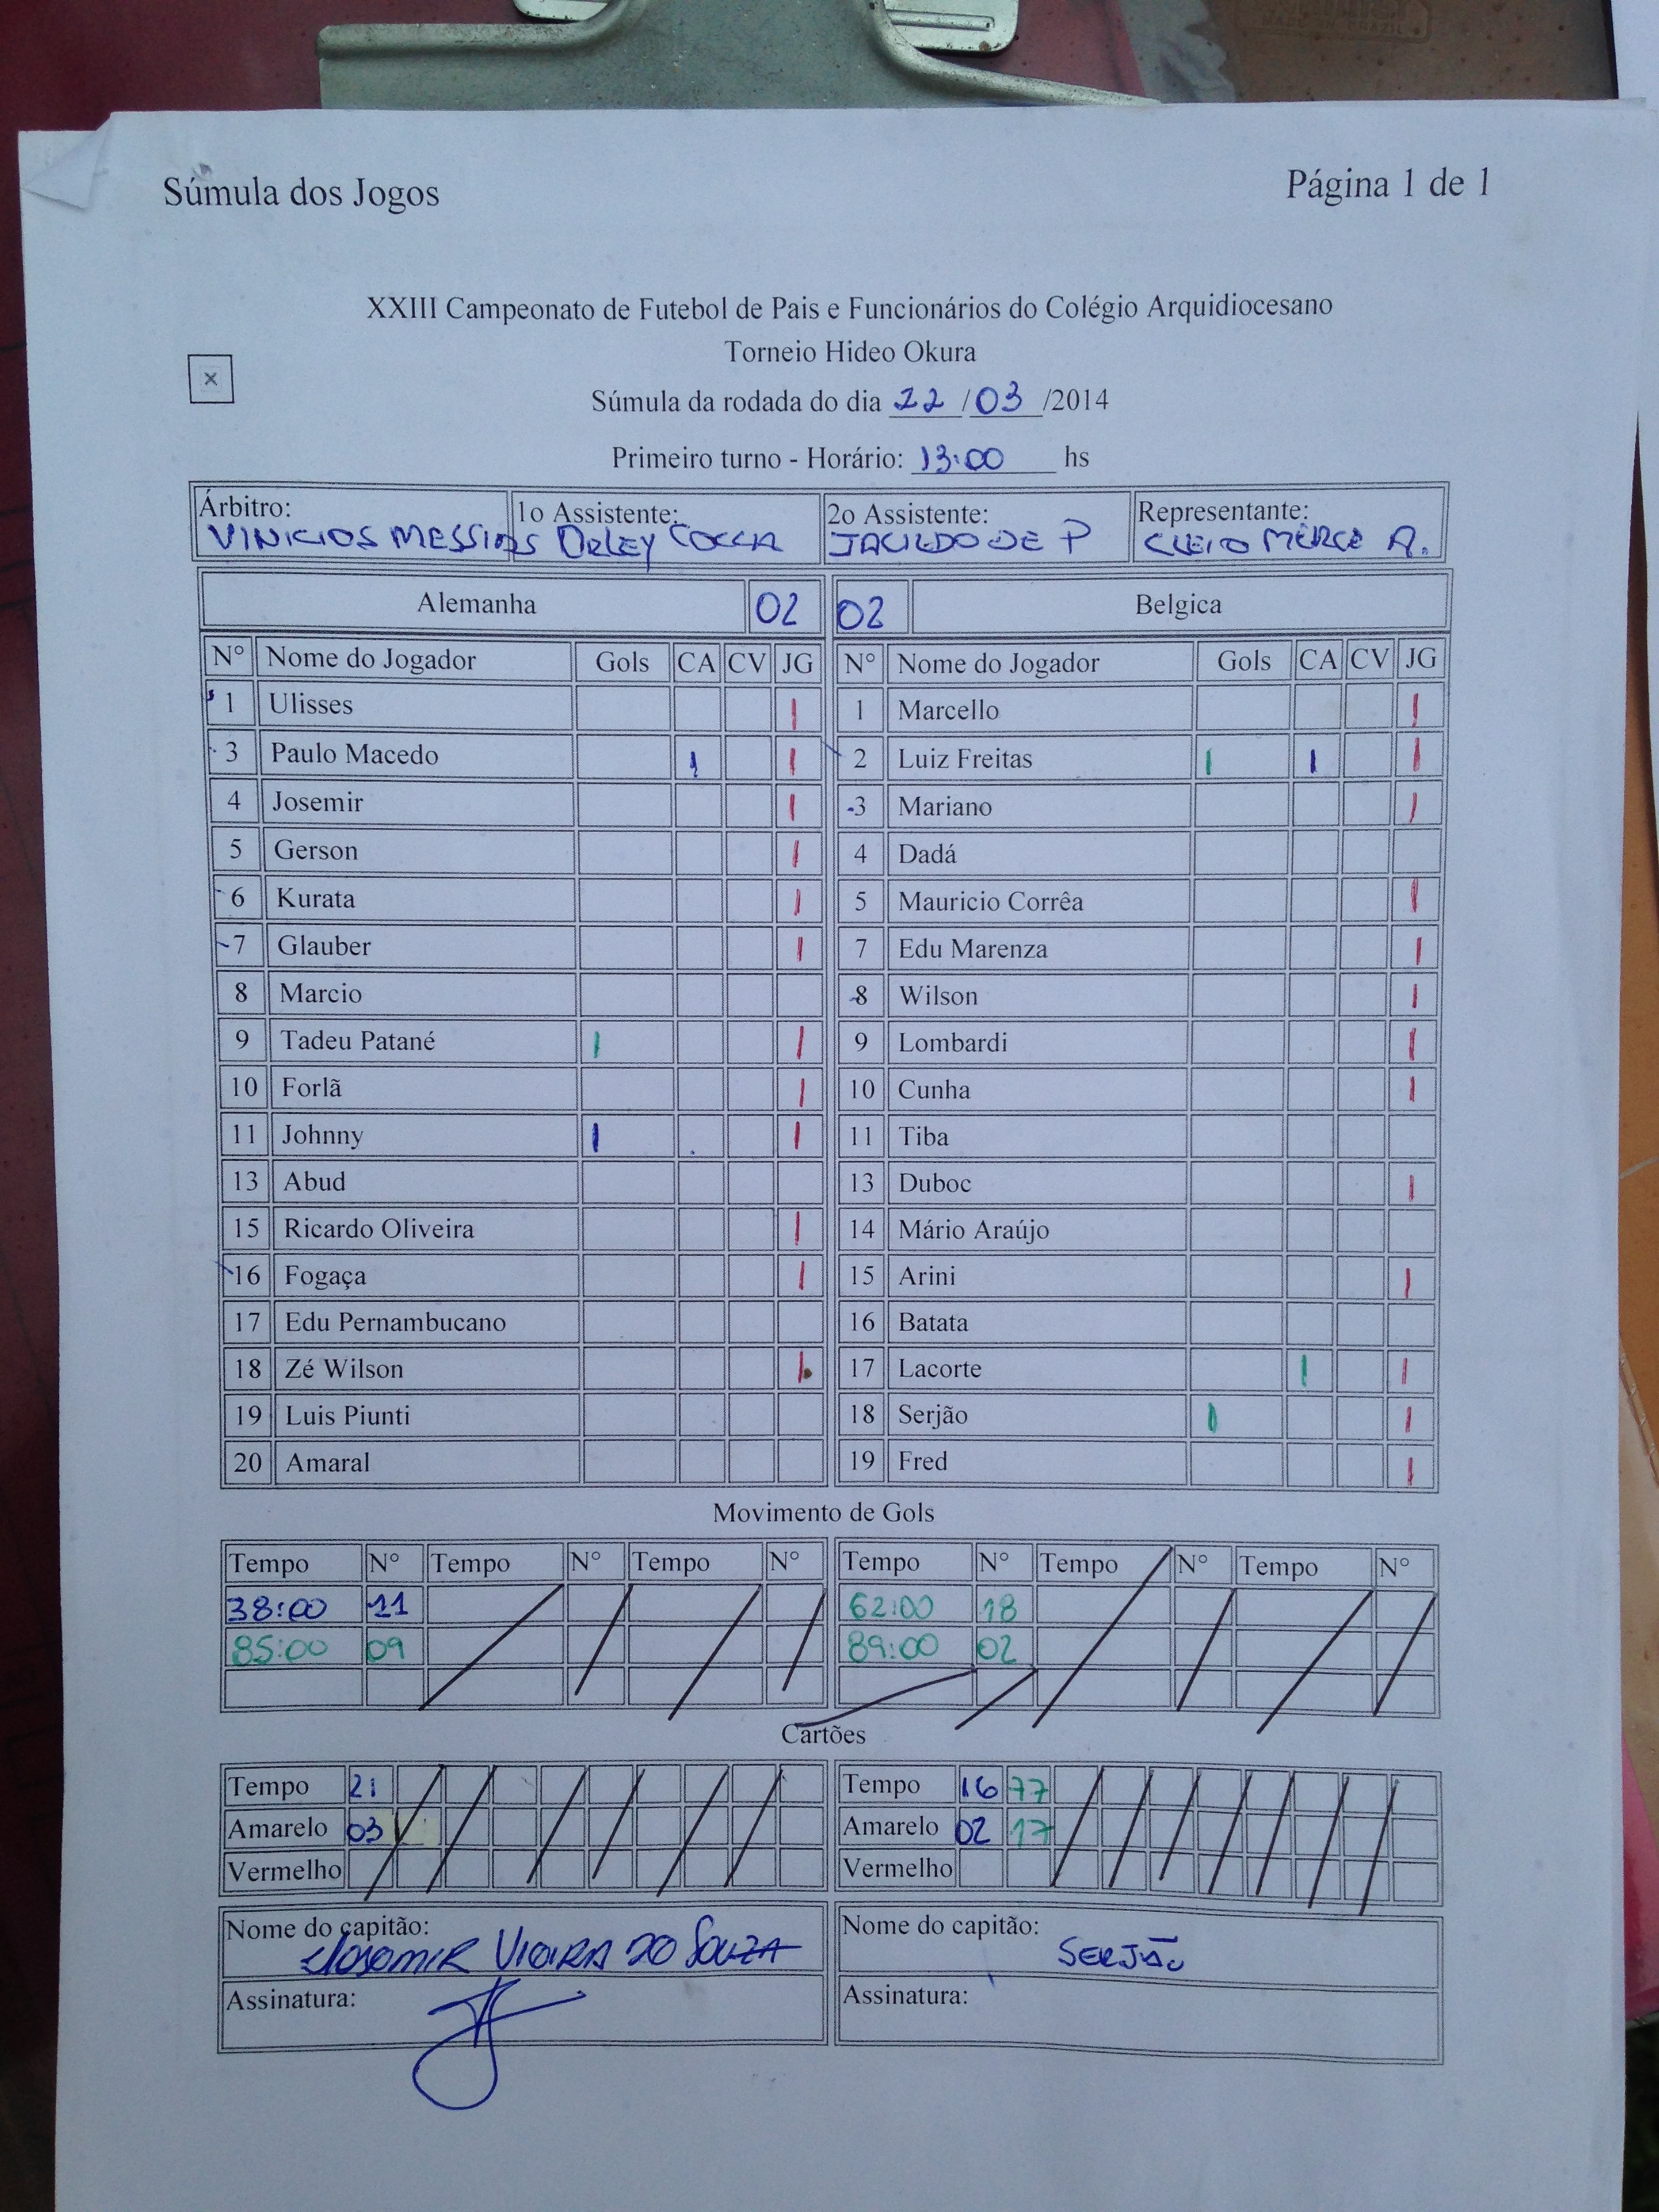 Súmula dos Jogos
Página 1 de 1
XXIII Campeonato de Futebol de Pais e Funcionários do Colégio Arquidiocesano
Torneio Hideo Okura
Súmula da rodada do dia 22 / 03 /2014
Primeiro turno - Horário: 13:00 hs
Árbitro: 1o Assistente: 2o Assistente: Representante:
VINICIOS MESSIAS ORLEY COCCIA JACILDO DE P
Alemanha 02 02 Belgica
Nº Nome do Jogador Gols CA CV JG Nº Nome do Jogador Gols CA CV JG
1 Ulisses | 1 Marcello |
3 Paulo Macedo | | 2 Luiz Freitas | | |
4 Josemir | 3 Mariano |
5 Gerson | 4 Dadá
6 Kurata | 5 Mauricio Corrêa |
7 Glauber | 7 Edu Marenza |
8 Marcio 8 Wilson |
9 Tadeu Patané | | 9 Lombardi |
10 Forlã | 10 Cunha |
11 Johnny | | 11 Tiba
13 Abud 13 Duboc |
15 Ricardo Oliveira | 14 Mário Araújo
16 Fogaça | 15 Arini |
17 Edu Pernambucano 16 Batata
18 Zé Wilson | 17 Lacorte | |
19 Luis Piunti 18 Serjão | |
20 Amaral 19 Fred |
Movimento de Gols
Tempo Nº Tempo Nº Tempo Nº Tempo Nº Tempo Nº Tempo Nº
38:00 11 62:00 18
85:00 09 89:00 02
Cartões
Tempo 21 Tempo 16 77
Amarelo 03 Amarelo 02 17
Vermelho Vermelho
Nome do capitão: Nome do capitão:
Josemir Vieira do Souza SERJÃO
Assinatura: Assinatura: